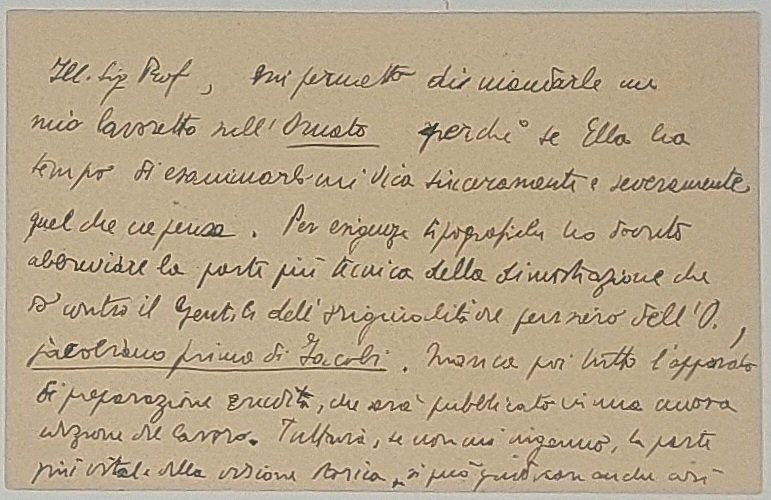 Ill. Sig Prof, mi permetto di mandarle un
mio lavoretto sull'Ornato perchè se Ella ha
tempo di esaminarlo mi dica sinceramente e severamente
quel che ne pensa. Per esigenze tipografiche ho dovuto
abbreviare la parte più tecnica della dimostrazione che
dò contro il Gentile dell'originalità del pensiero dell'O.,
jacobiano prima di Jacobi. Manca poi tutto l'apparato
di preparazione erudita, che sarà pubblicato in una nuova
edizione del lavoro. Tuttavia, se non mi inganno, la parte
più vitale della visione storica, si può giudicare anche così